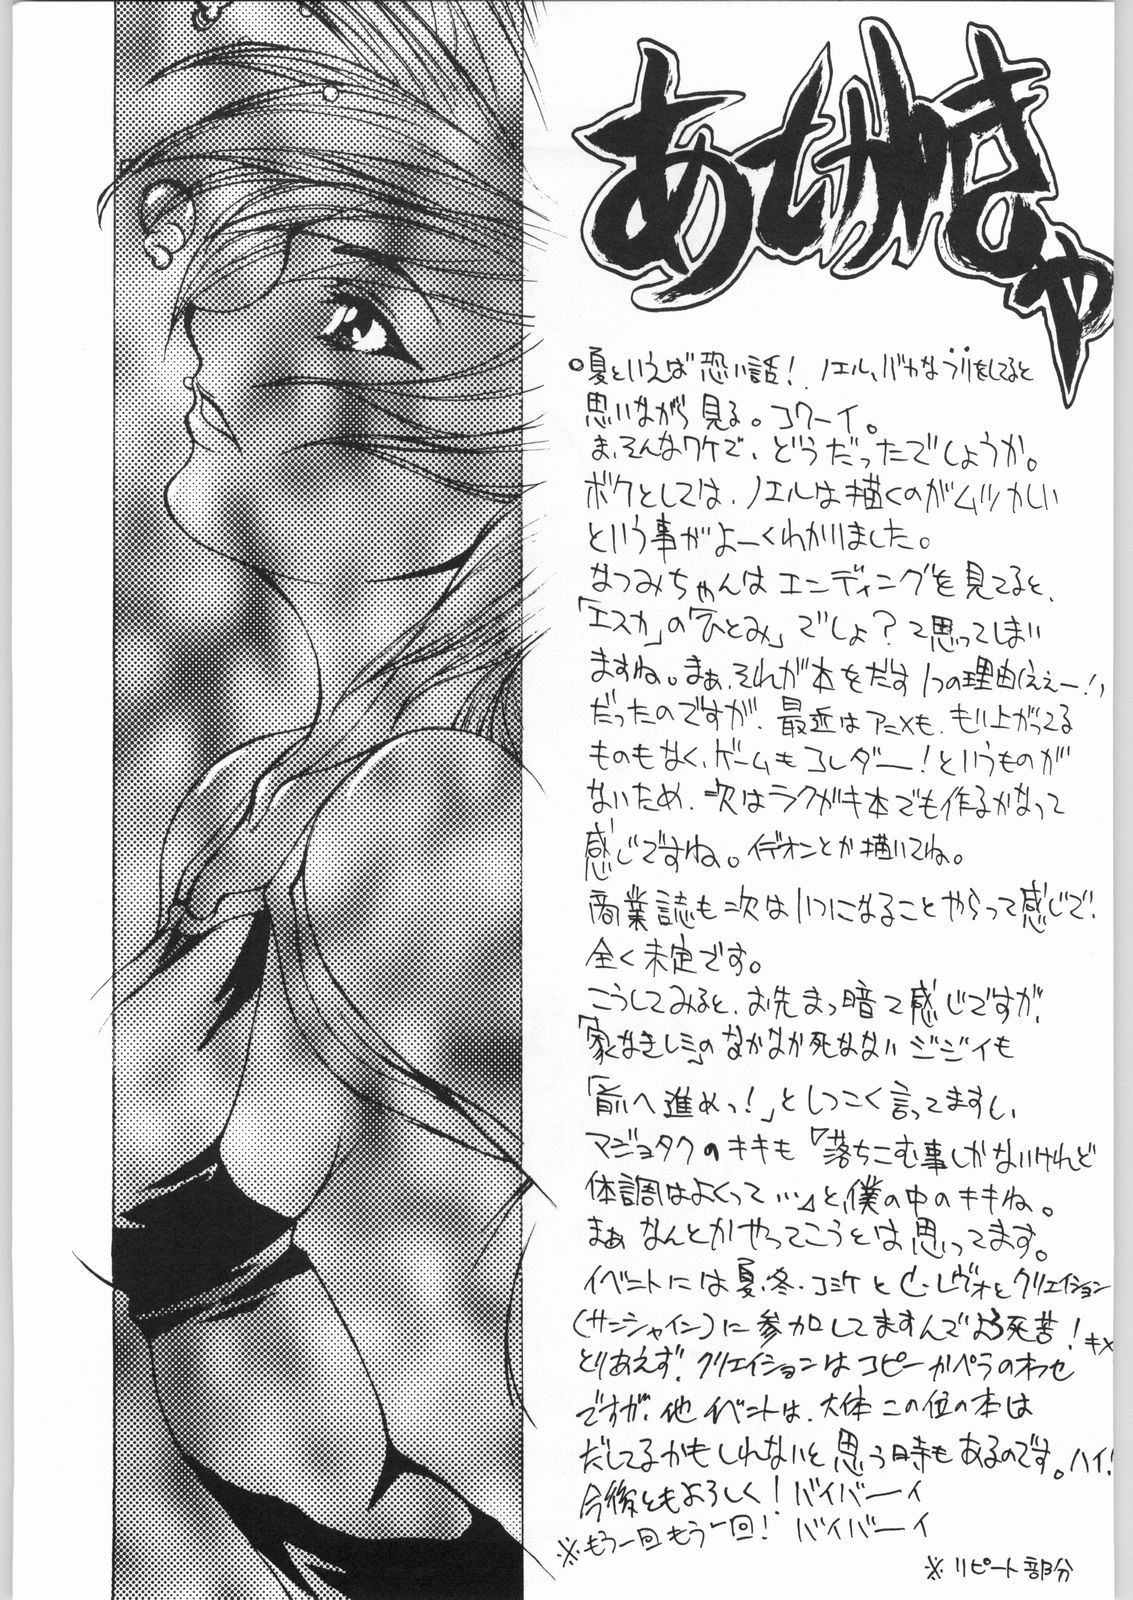 あとがきゃ
○夏といえば恐い話! ノエル、バカなフリをしてると
思いながら見る。コワーイ。
ま、そんなワケで、どうだったでしょうか。
ボクとしては、ノエルは描くのがムツかしい
という事がよーくわかりました。
なつみちゃんはエンディングを見てると、
「エスカ」の「ひとみ」でしょ?て思ってしまい
ますね。まぁ、それが本をだす1つの理由(ええー!)
だったのですが、最近はアニメも、もり上がってる
ものもなく、ゲームもコレダー!というものが
ないため、次はラクガキ本でも作るかなって
感じですね。イデオンとか描いてね。
商業誌も次はいつになることやらって感じで、
全く未定です。
こうしてみると、お先まっ暗て感じですが、
「家なき子レミ」のなかなか死なないジジイも
「前へ進めっ!」としつこく言ってますし、
マジョタクのキキも「落ちこむ事しかないけれど
体調はよくって…」と僕の中のキキね。
まぁなんとかやってこうとは思ってます。
イベントには夏・冬・コミケとC・レヴォとクリエイション
(サンシャイン)に参加してますんでよろ死苦! キメ
とりあえず、クリエイションはコピーかペラのオフセ
ですが、他イベントは、大体この位の本は
だしてるかもしれないと思う日時もあるのです。ハイ!
今後ともよろしく! バイバーイ
※もう一回もう一回! バイバーイ
※リピート部分